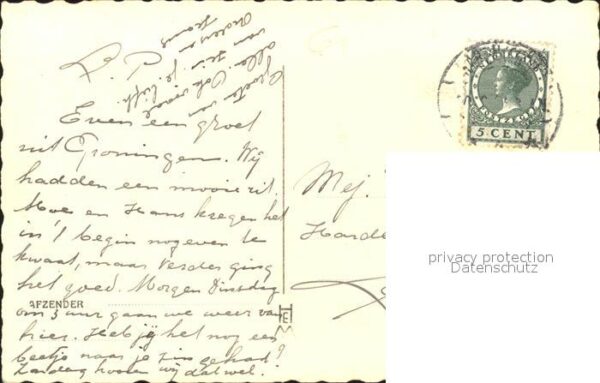 L. P.
Even een groet
uit Groningen. Wij
hadden een mooie rit.
Moe en Hans kregen het
in 't begin nog even te
kwaat, maar verder ging
het goed. Morgen Dinsdag
om 3 uur gaan we weer van
hier. Heb jij het nog een
beetje naar je zin gehad?
Zondag horen wij dat wel.
Groeten van
allen Ook
van
AFZENDER
5 CENT
Mej.
Harde
privacy protection
Datenschutz